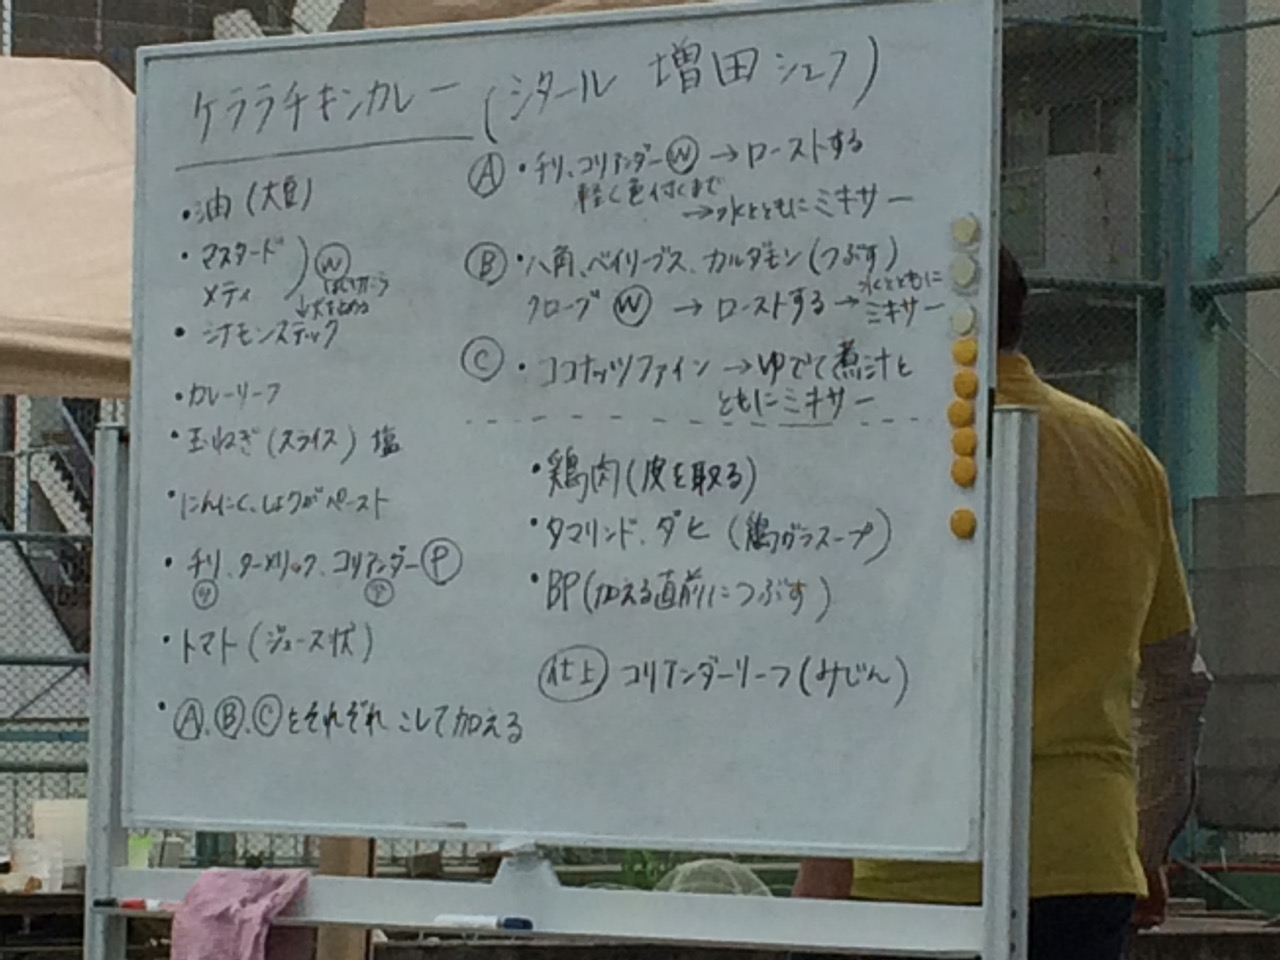 ケララチキンカレー (シタール 増田シェフ)
・油 (大豆)
・マスタード
メティ
Ⓦ
↓火を止める
・シナモンスティック
・カレーリーフ
・玉ねぎ (スライス) 塩
・にんにく、しょうがペースト
・チリ、ターメリック、コリアンダー Ⓟ
・トマト (ジュース状)
・Ⓐ、Ⓑ、Ⓒをそれぞれこして加える
Ⓐ ・チリ、コリアンダー Ⓦ → ローストする
軽く色付くまで
→ 水とともにミキサー
Ⓑ ・八角、ベイリーブス、カルダモン (つぶす)
クローブ Ⓦ → ローストする → 水とともに
ミキサー
Ⓒ ・ココナッツファイン → ゆでて煮汁と
ともにミキサー
・鶏肉 (皮を取る)
・タマリンド、ダヒ (鶏ガラスープ)
・BP (加える直前につぶす)
仕上 コリアンダーリーフ (みじん)